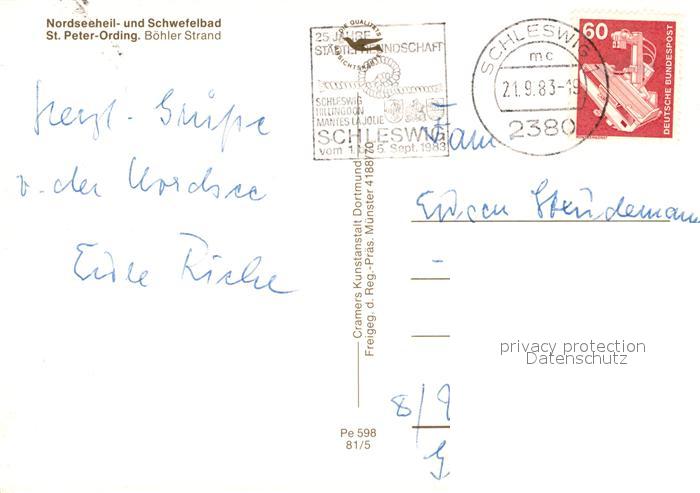 Nordseeheil- und Schwefelbad
St. Peter-Ording. Böhler Strand
Herzl. Grüße
v. der Nordsee
Cramers Kunstanstalt Dortmund
Freigeg. d. Reg.-Präs. Münster 4188/70
Pe 598
81/5
25 JAHRE
STÄDTEFREUNDSCHAFT
SCHLESWIG
HILLINGDON
MANTES LA JOLIE
SCHLESWIG
Sept. 1983
SCHLESWIG 1
mc
21.9.83-19
2380
60
DEUTSCHE BUNDESPOST
Fam
privacy protection
Datenschutz
8/9